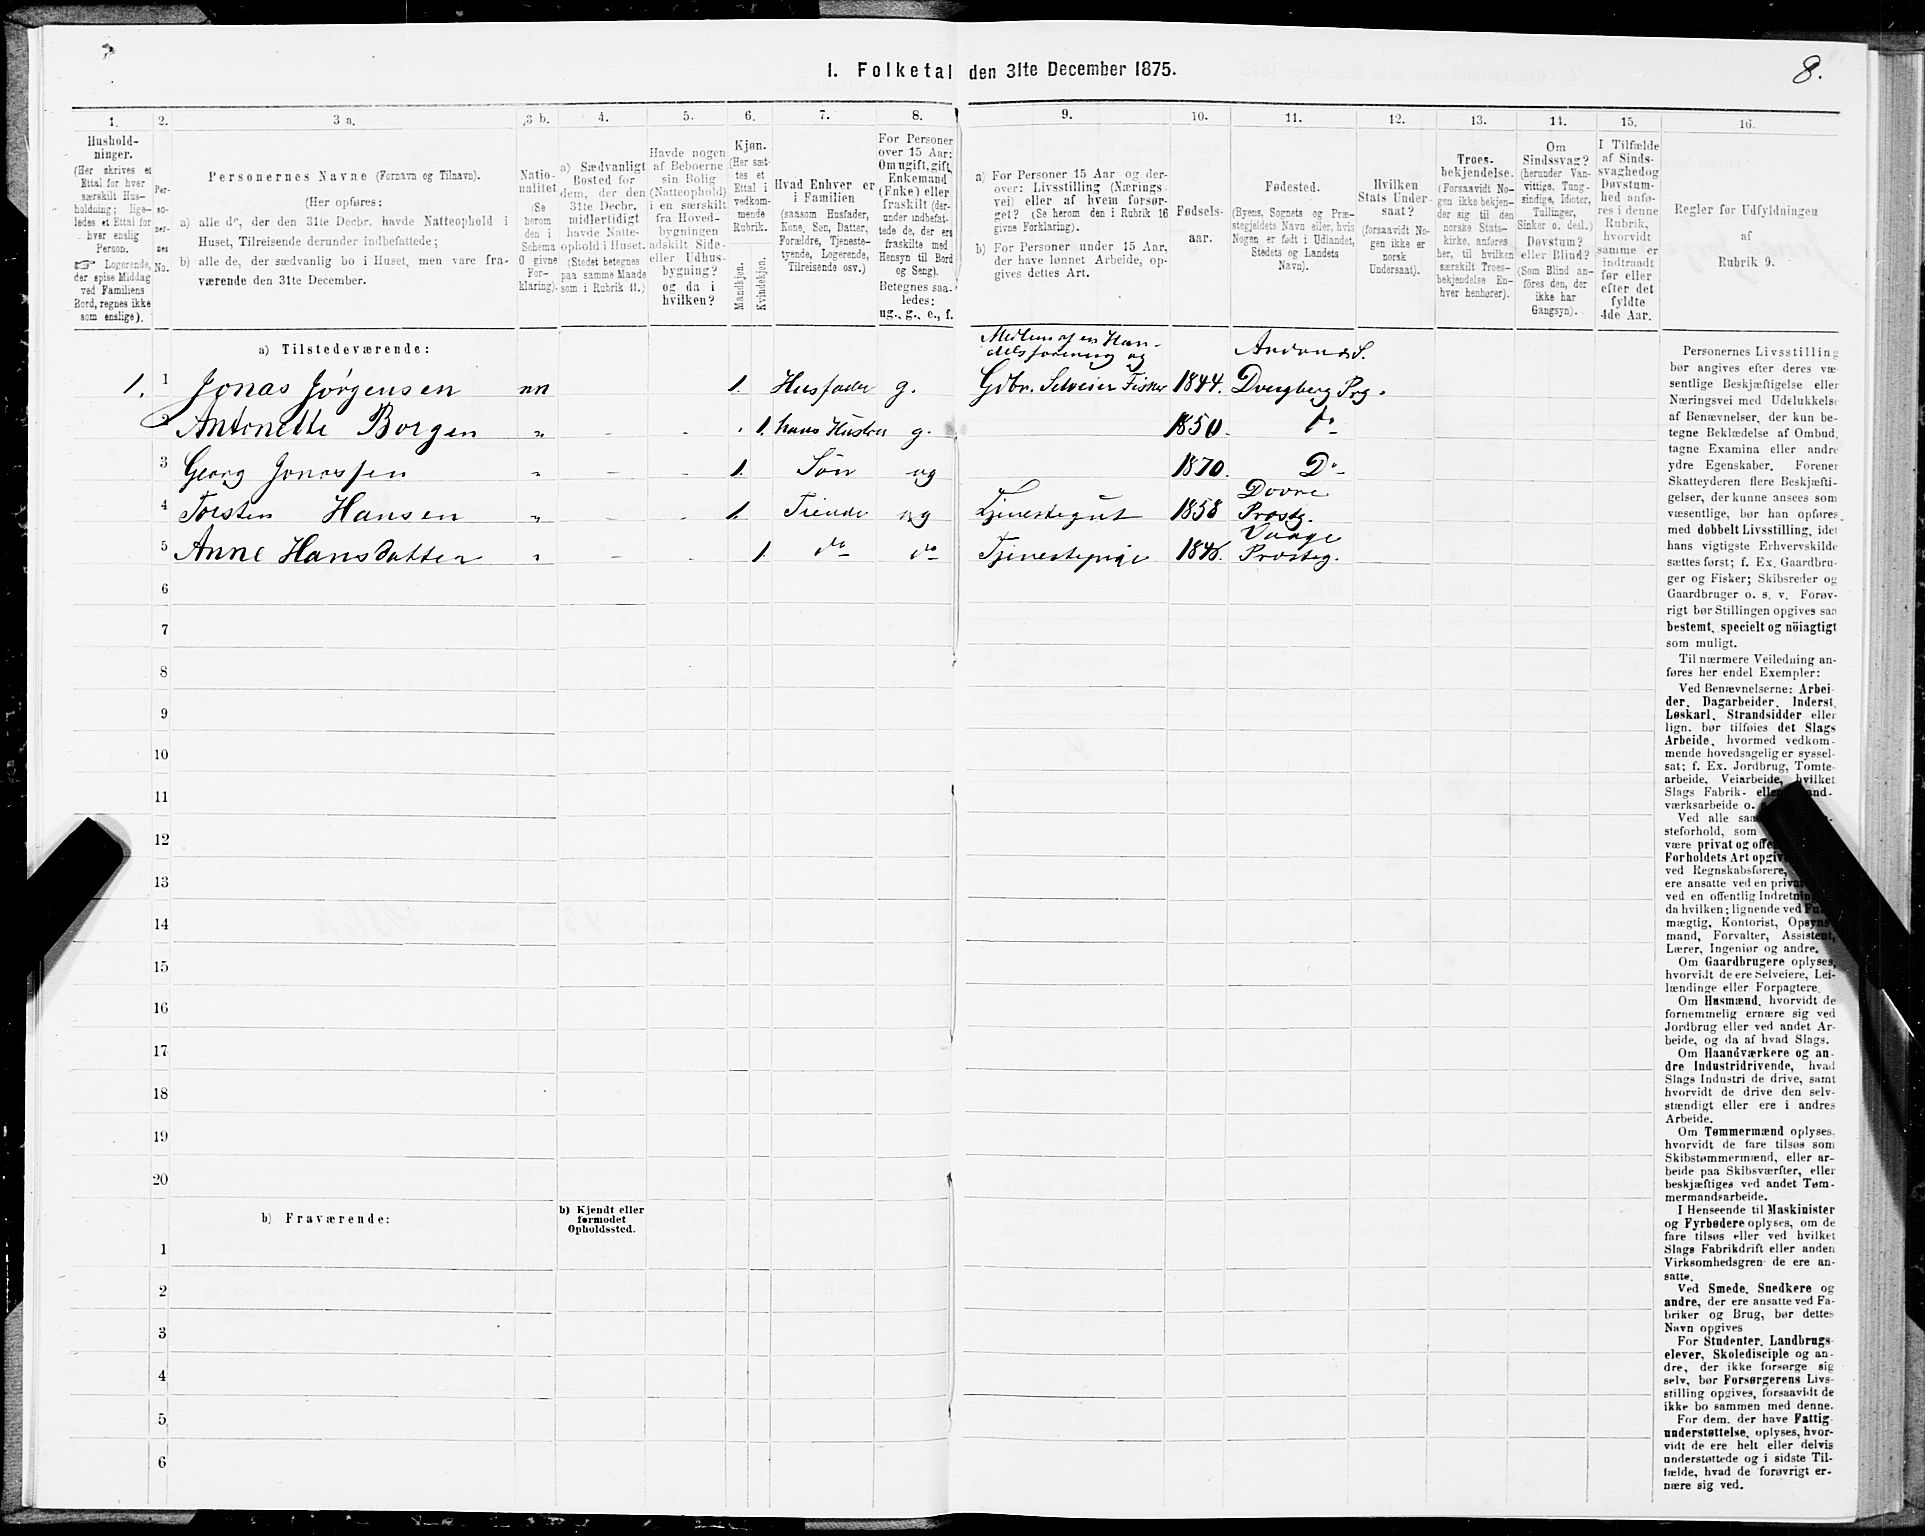 I. Folketal den 31te December 1875.
8.
1.
Hushold-
ninger.
(Her skrives et
Ettal for hver
særskilt Hus-
holdning; lige-
ledes et Ettal for
hver enslig
Person.
☞ Logerende,
der spise Middag
ved Familiens
Bord, regnes ikke
som enslige).
2.
Per-
so-
ner-
nes
No.
3 a.
Personernes Navne (Fornavn og Tilnavn).
(Her opføres:
a) alle de, der den 31te Decbr. havde Natteophold i
Huset, Tilreisende derunder indbefattede;
b) alle de, der sædvanlig bo i Huset, men vare fra-
værende den 31te December.
3 b.
Natio-
nalitet
(Se
herom
den i
Schema
O givne
For-
klaring).
4.
a) Sædvanligt
Bosted for
dem, der den
31te Decbr.
midlertidigt
havde Natte-
ophold i Huset.
(Stedet betegnes
paa samme Maade
som i Rubrik 11.)
5.
Havde nogen
af Beboerne
sin Bolig
(Natteophold)
i en særskilt
fra Hoved-
bygningen
adskilt Side-
eller Udhus-
bygning?
og da i
hvilken?
6.
Kjøn.
(Her sæt-
tes et
Ettal i
vedkom-
mende
Rubrik.
Mandkjøn.
Kvindekjøn.
7.
Hvad Enhver er
i Familien
(saasom Husfader,
Kone, Søn, Datter,
Forældre, Tjeneste-
tyende, Logerende,
Tilreisende osv.)
8.
For Personer
over 15 Aar:
Om ugift, gift,
Enkemand
(Enke) eller
fraskilt (der-
under indbefat-
tede de, der ere
fraskilte med
Hensyn til Bord
og Seng).
Betegnes saa-
ledes:
ug., g., e., f.
9.
a) For Personer 15 Aar og der-
over: Livsstilling (Nærings-
vei) eller af hvem forsør-
get? (Se herom den i Rubrik 16
givne Forklaring.)
b) For Personer under 15 Aar,
der have lønnet Arbeide, op-
gives dettes Art.
10.
Fødsels-
aar.
11.
Fødested.
(Byens, Sognets og Præ-
stegjeldets Navn eller, hvis
Nogen er født i Udlandet,
Stedets og Landets
Navn).
12.
Hvilken
Stats Under-
saat?
(forsaavidt No-
gen ikke er
norsk
Undersaat).
13.
Troes-
bekjendelse.
(Forsaavidt No-
gen ikke bekjen-
der sig til den
norske Stats-
kirke, anføres
her, til hvilken
særskilt Troes-
bekjendelse En-
hver henhører).
14.
Om
Sindssvag?
(herunder Van-
vittige, Tung-
sindige, Idioter,
Tullinger,
Sinker o. desl.)
Døvstum?
eller Blind?
(Som Blind an-
føres den, der
ikke har
Gangsyn).
15.
I Tilfælde
af Sinds-
svaghed og
Døvstum-
hed anfø-
res i denne
Rubrik,
hvorvidt
samme er
indtraadt
før eller
efter det
fyldte
4de Aar.
16.
Regler for Udfyldningen
af
Rubrik 9.
a) Tilstedeværende:
Medlem af en Han-
delsforening og
Andenes S.
1. 1 Jonas Jørgensen nn 1. Husfader g. Gdbr. Selveier Fisker 1844. Dverberg Prg.
2 Antonette Borgen „ - - . 1. hans Hustru g. 1850. do
3 Georg Jonassen „ - - 1. Søn ug 1870. Do
Dovre
4 Torsten Hansen „ - - 1. Tiende ug Tjenestegut 1858 Prestg.
Vaage
5 Anne Hansdatter „ - - 1. do do Tjenestepige Prosteg.
6
7
8
9
10
11
12
13
14
15
16
17
18
19
20
b) Fraværende:
b) Kjendt eller
formodet
Opholdssted.
1
2
3
4
5
6
Personernes Livsstilling
bør angives efter deres væ-
sentlige Beskjæftigelse eller
Næringsvei med Udelukkelse
af Benævnelser, der kun be-
tegne Beklædelse af Ombud,
tagne Examina eller andre
ydre Egenskaber. Forener
Skatteyderen flere Beskjæfti-
gelser, der kunne ansees som
væsentlige, bør han opføres
med dobbelt Livsstilling, idet
hans vigtigste Erhvervskilde
sættes først; f. Ex. Gaardbru-
ger og Fisker; Skibsreder og
Gaardbruger o. s. v. Forøv-
rigt bør Stillingen opgives saa
bestemt, specielt og nöiagtigt
som muligt.
Til nærmere Veiledning an-
føres her endel Exempler:
Ved Benævnelserne: Arbei-
der, Dagarbeider, Inderst,
Løskarl, Strandsidder eller
lign. bør tilføies det Slags
Arbeide, hvormed vedkom-
mende hovedsagelig er syssel-
sat; f. Ex. Jordbrug, Tomte-
arbeide, Veiarbeide, hvilket
Slags Fabrik-
værksarbeide o.
Ved alle
steforhold, som
være privat og
Forholdets Art
ved Regnskabsførere,
ere ansatte ved en
ved en offentlig
da hvilken; lignende ved
mægtig, Kontorist,
mand, Forvalter, Assistent,
Lærer, Ingeniør og andre.
Om Gaardbrugere oplyses,
hvorvidt de ere Selveiere, Lei-
lændinge eller Forpagtere.
Om Husmænd, hvorvidt de
fornemmelig ernære sig ved
Jordbrug eller ved andet Ar-
beide, og da af hvad Slags.
Om Haandværkere og an-
dre Industridrivende, hvad
Slags Industri de drive, samt
hvorvidt de drive den selv-
stændigt eller ere i andres
Arbeide.
Om Tømmermænd oplyses,
hvorvidt de fare tilsøs som
Skibstømmermænd, eller ar-
beide paa Skibsværfter, eller
beskjæftiges ved andet Tøm-
mermandsarbeide.
I Henseende til Maskinister
og Fyrbødere oplyses, om de
fare tilsøs eller ved hvilket
Slags Fabrikdrift eller anden
Virksomhedsgren de ere an-
satte.
Ved Smede, Snedkere og
andre, der ere ansatte ved Fa-
briker og Brug, bør dettes
Navn opgives
For Studenter, Landbrugs-
elever, Skoledisciple og an-
dre, der ikke forsørge sig
selv, bør Forsørgerens Livs-
stilling opgives, forsaavidt de
ikke bo sammen med denne.
For dem, der have Fattig-
understøttelse, oplyses, hvor-
vidt de ere helt eller delvis
understøttede og i sidste Til-
fælde, hvad de forøvrigt er-
nære sig ved.